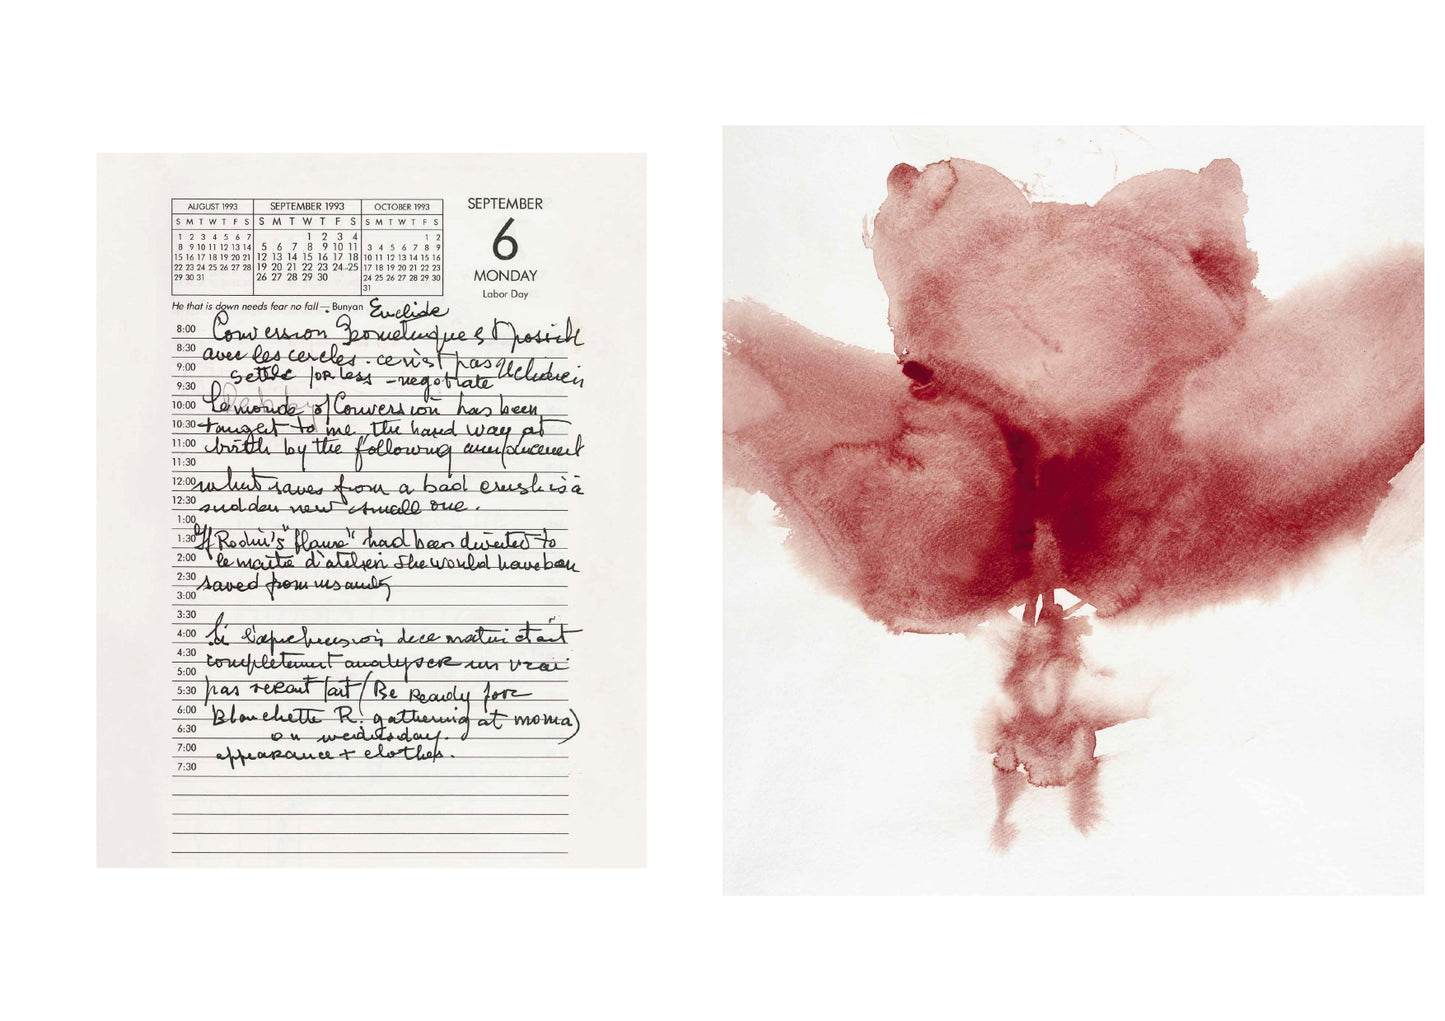 AUGUST 1993
S M T W T F S
1 2 3 4 5 6 7
8 9 10 11 12 13 14
15 16 17 18 19 20 21
22 23 24 25 26 27 28
29 30 31
SEPTEMBER 1993
S M T W T F S
1 2 3 4
5 6 7 8 9 10 11
12 13 14 15 16 17 18
19 20 21 22 23 24 25
26 27 28 29 30
OCTOBER 1993
S M T W T F S
1 2
3 4 5 6 7 8 9
10 11 12 13 14 15 16
17 18 19 20 21 22 23
24 25 26 27 28 29 30
31
SEPTEMBER
6
MONDAY
Labor Day
He that is down needs fear no fall — Bunyan Euclide
8:00 Conversion Geometrique est possible
8:30 avec les cercles. ce n'est pas
9:00 settle for less - negotiate
9:30
10:00 Le monde of Conversion has been
10:30 taught to me the hard way at
11:00 birth by the following
11:30
12:00 what saves from a bad crush is a
12:30 sudden new small one.
1:00
1:30 If Rodin's "flame" had been diverted to
2:00 le maitre d'atelier she would have been
2:30 saved from insanity
3:00
3:30
4:00 Si l'apprehension de ce matin etait
4:30 completement analyser un vrai
5:00
5:30 pas serait fait (Be Ready for
6:00 Blanchette R. gathering at moma)
6:30 on wednesday.
7:00 appearance + clothes.
7:30